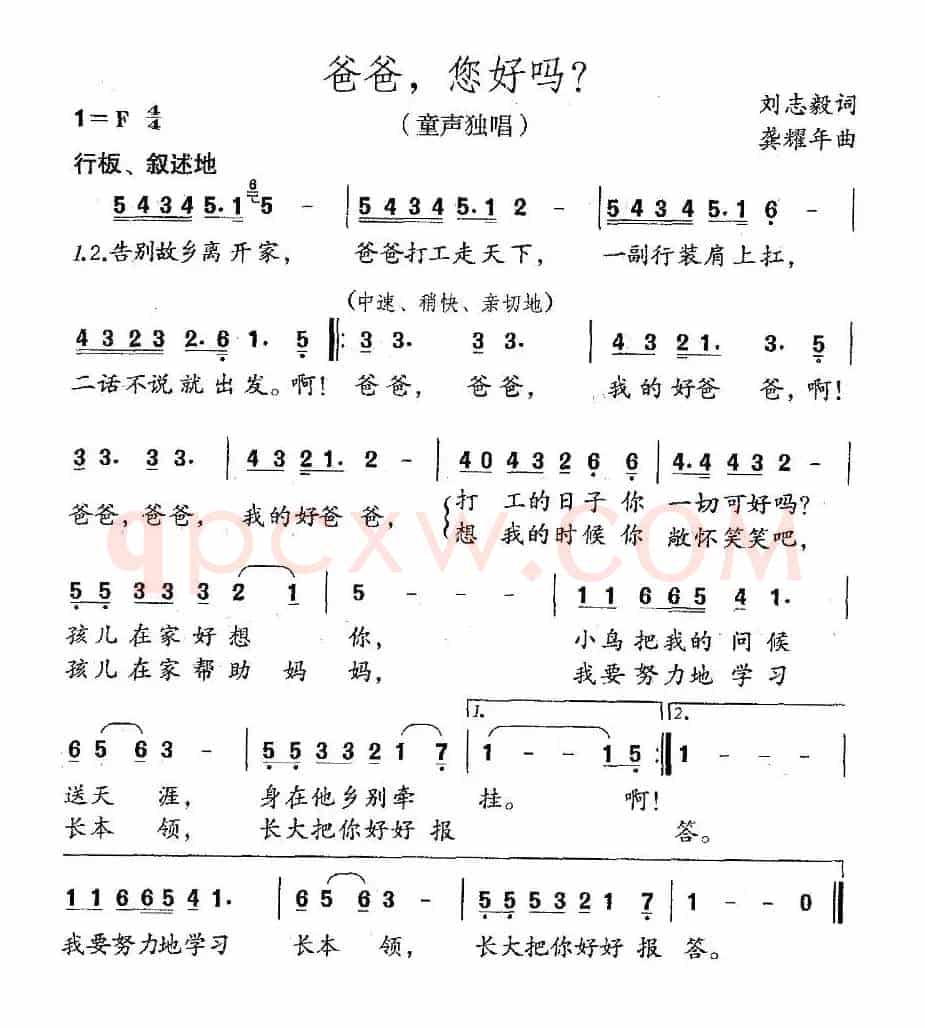 爸爸，您好吗？
1=F 4/4
（童声独唱）
刘志毅词
龚耀年曲
行板、叙述地
5 4 3 4 5. 1 6 5 - | 5 4 3 4 5. 1 2 - | 5 4 3 4 5. 1 6 - |
1.2.告别故乡离开家， 爸爸打工走天下， 一副行装肩上扛，
（中速、稍快、亲切地）
4 3 2 3 2. 6 1. 5 |: 3 3. 3 3. | 4 3 2 1. 3. 5 |
二话不说就出发。啊！ 爸爸， 爸爸， 我的好爸 爸，啊！
3 3. 3 3. | 4 3 2 1. 2 - | 4 0 4 3 2 6 6 | 4. 4 4 3 2 - |
爸爸，爸爸， 我的好爸爸， 打 工的日子你 一切可好吗？
想 我的时候你 敞怀笑笑吧，
qpcxw.com
5 5 3 3 3 2 1 | 5 - - - | 1 1 6 6 5 4 1. |
孩儿在家好想 你， 小鸟把我的问候
孩儿在家帮助妈 妈， 我要努力地学习
1. 2.
6 5 6 3 - | 5 5 3 3 2 1 7 | 1 - - 1 5 :| 1 - - - |
送天 涯， 身在他乡别牵 挂。 啊！
长本 领， 长大把你好好报 答。
1 1 6 6 5 4 1. | 6 5 6 3 - | 5 5 5 3 2 1 7 | 1 - - 0 ‖
我要努力地学习 长本 领， 长大把你好好 报 答。